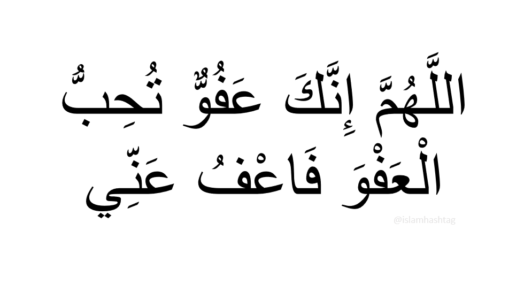 اللَّهُمَّ إِنَّكَ عَفُوٌّ تُحِبُّ
الْعَفْوَ فَاعْفُ عَنِّي
@islamhashtag